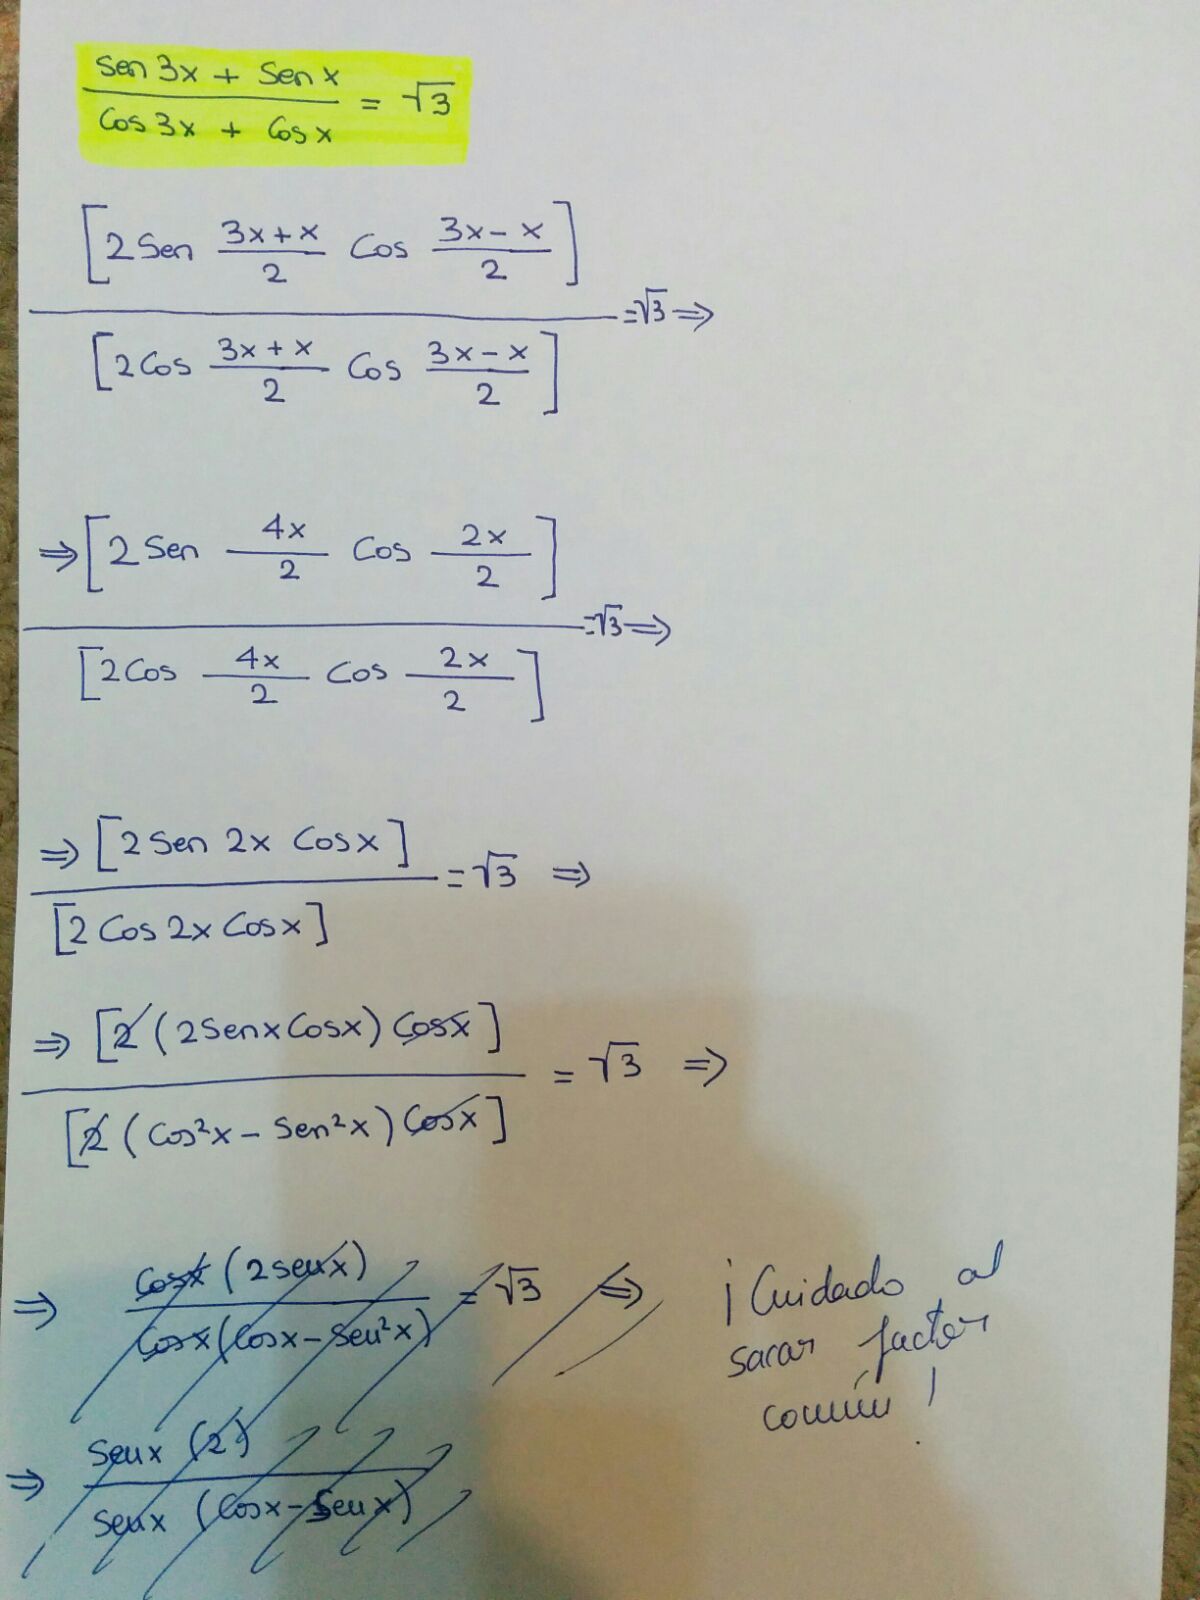 sen 3x + sen x / cos 3x + cos x = √3
[2 sen 3x+x/2 cos 3x-x/2] / [2 cos 3x+x/2 cos 3x-x/2] = √3 ⇒
⇒ [2 sen 4x/2 cos 2x/2] / [2 cos 4x/2 cos 2x/2] = √3 ⇒
⇒ [2 sen 2x cos x] / [2 cos 2x cos x] = √3 ⇒
⇒ [2 (2 sen x cos x) cos x] / [2 (cos²x - sen²x) cos x] = √3 ⇒
⇒ cos x (2 sen x) / cos x (cos x - sen²x) = √3 ⇒
¡Cuidado al
sacar factor
común!
⇒ sen x (2) / sen x (cos x - sen x)